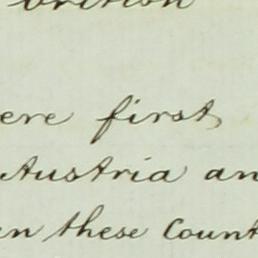 British
ere first
Austria an
en these Count